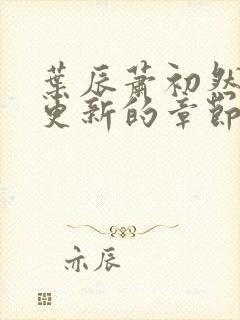 葉辰蕭初然
更新的章節
亦辰